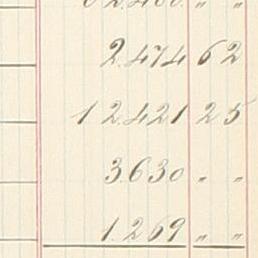 2.474 62
12.421 25
3.630 " "
1.269 " "